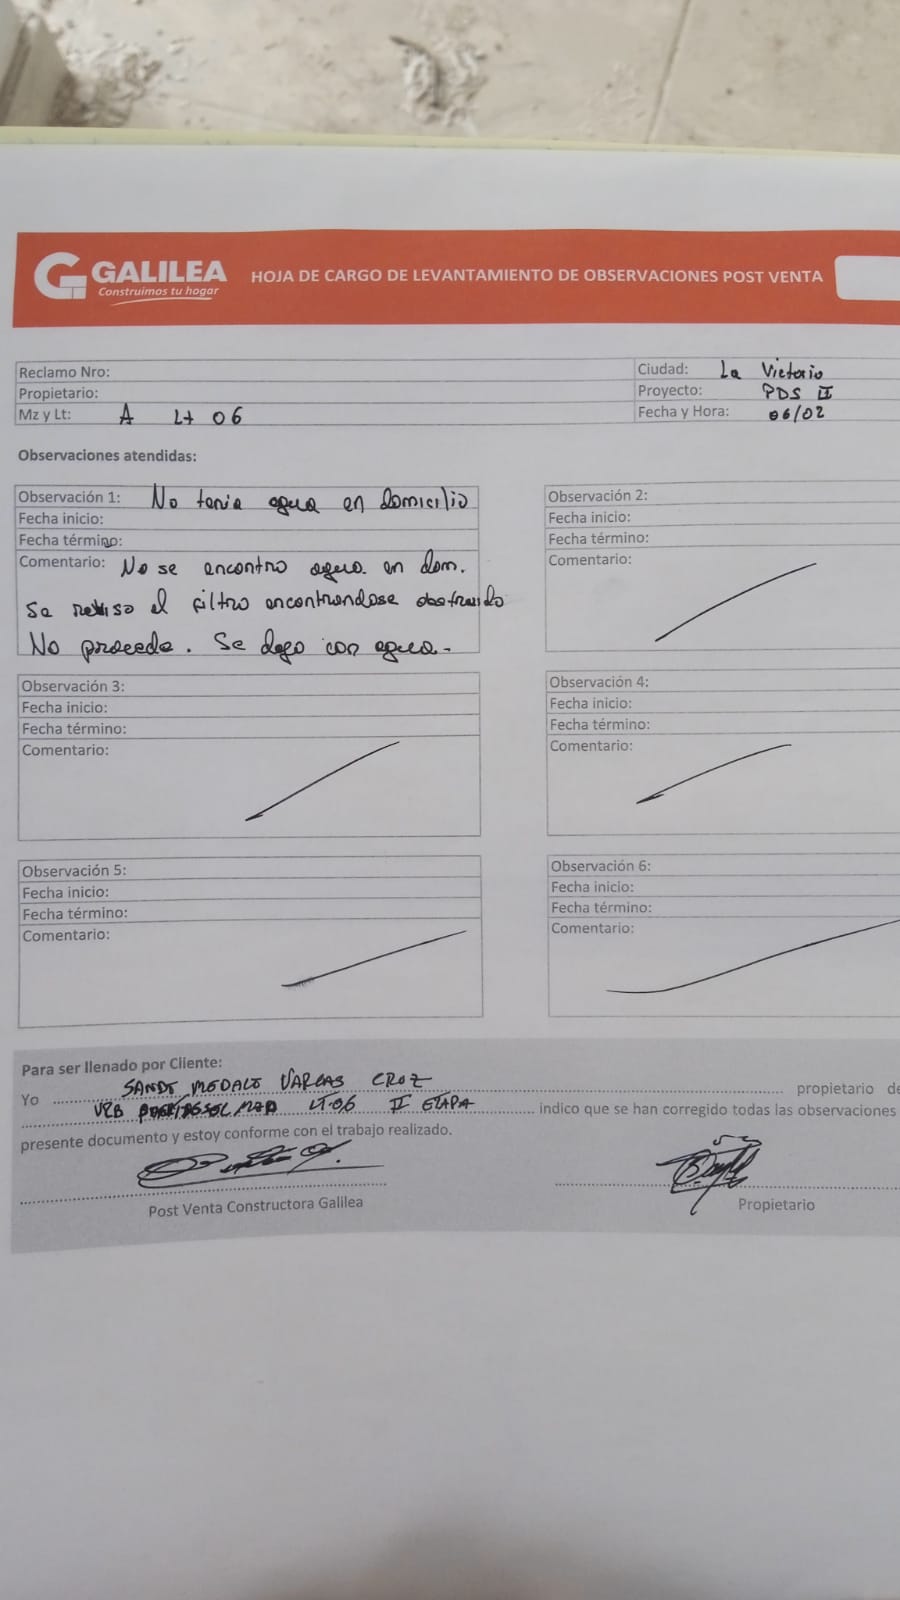 GALILEA
Construimos tu hogar
HOJA DE CARGO DE LEVANTAMIENTO DE OBSERVACIONES POST VENTA
Reclamo Nro:
Ciudad: La Victoria
Propietario:
Proyecto: PDS II
Mz y Lt: A Lt 06
Fecha y Hora: 06/02
Observaciones atendidas:
Observación 1: No tenia agua en domicilio
Fecha inicio:
Fecha término:
Comentario: No se encontro agua en dom.
Se reviso el filtro encontrandose obstruido
No procede. Se dejo con agua.-
Observación 2:
Fecha inicio:
Fecha término:
Comentario:
Observación 3:
Fecha inicio:
Fecha término:
Comentario:
Observación 4:
Fecha inicio:
Fecha término:
Comentario:
Observación 5:
Fecha inicio:
Fecha término:
Comentario:
Observación 6:
Fecha inicio:
Fecha término:
Comentario:
Para ser llenado por Cliente:
Yo VARGAS CROZ propietario de
URB LT-06 II ETAPA indico que se han corregido todas las observaciones
presente documento y estoy conforme con el trabajo realizado.
Post Venta Constructora Galilea
Propietario